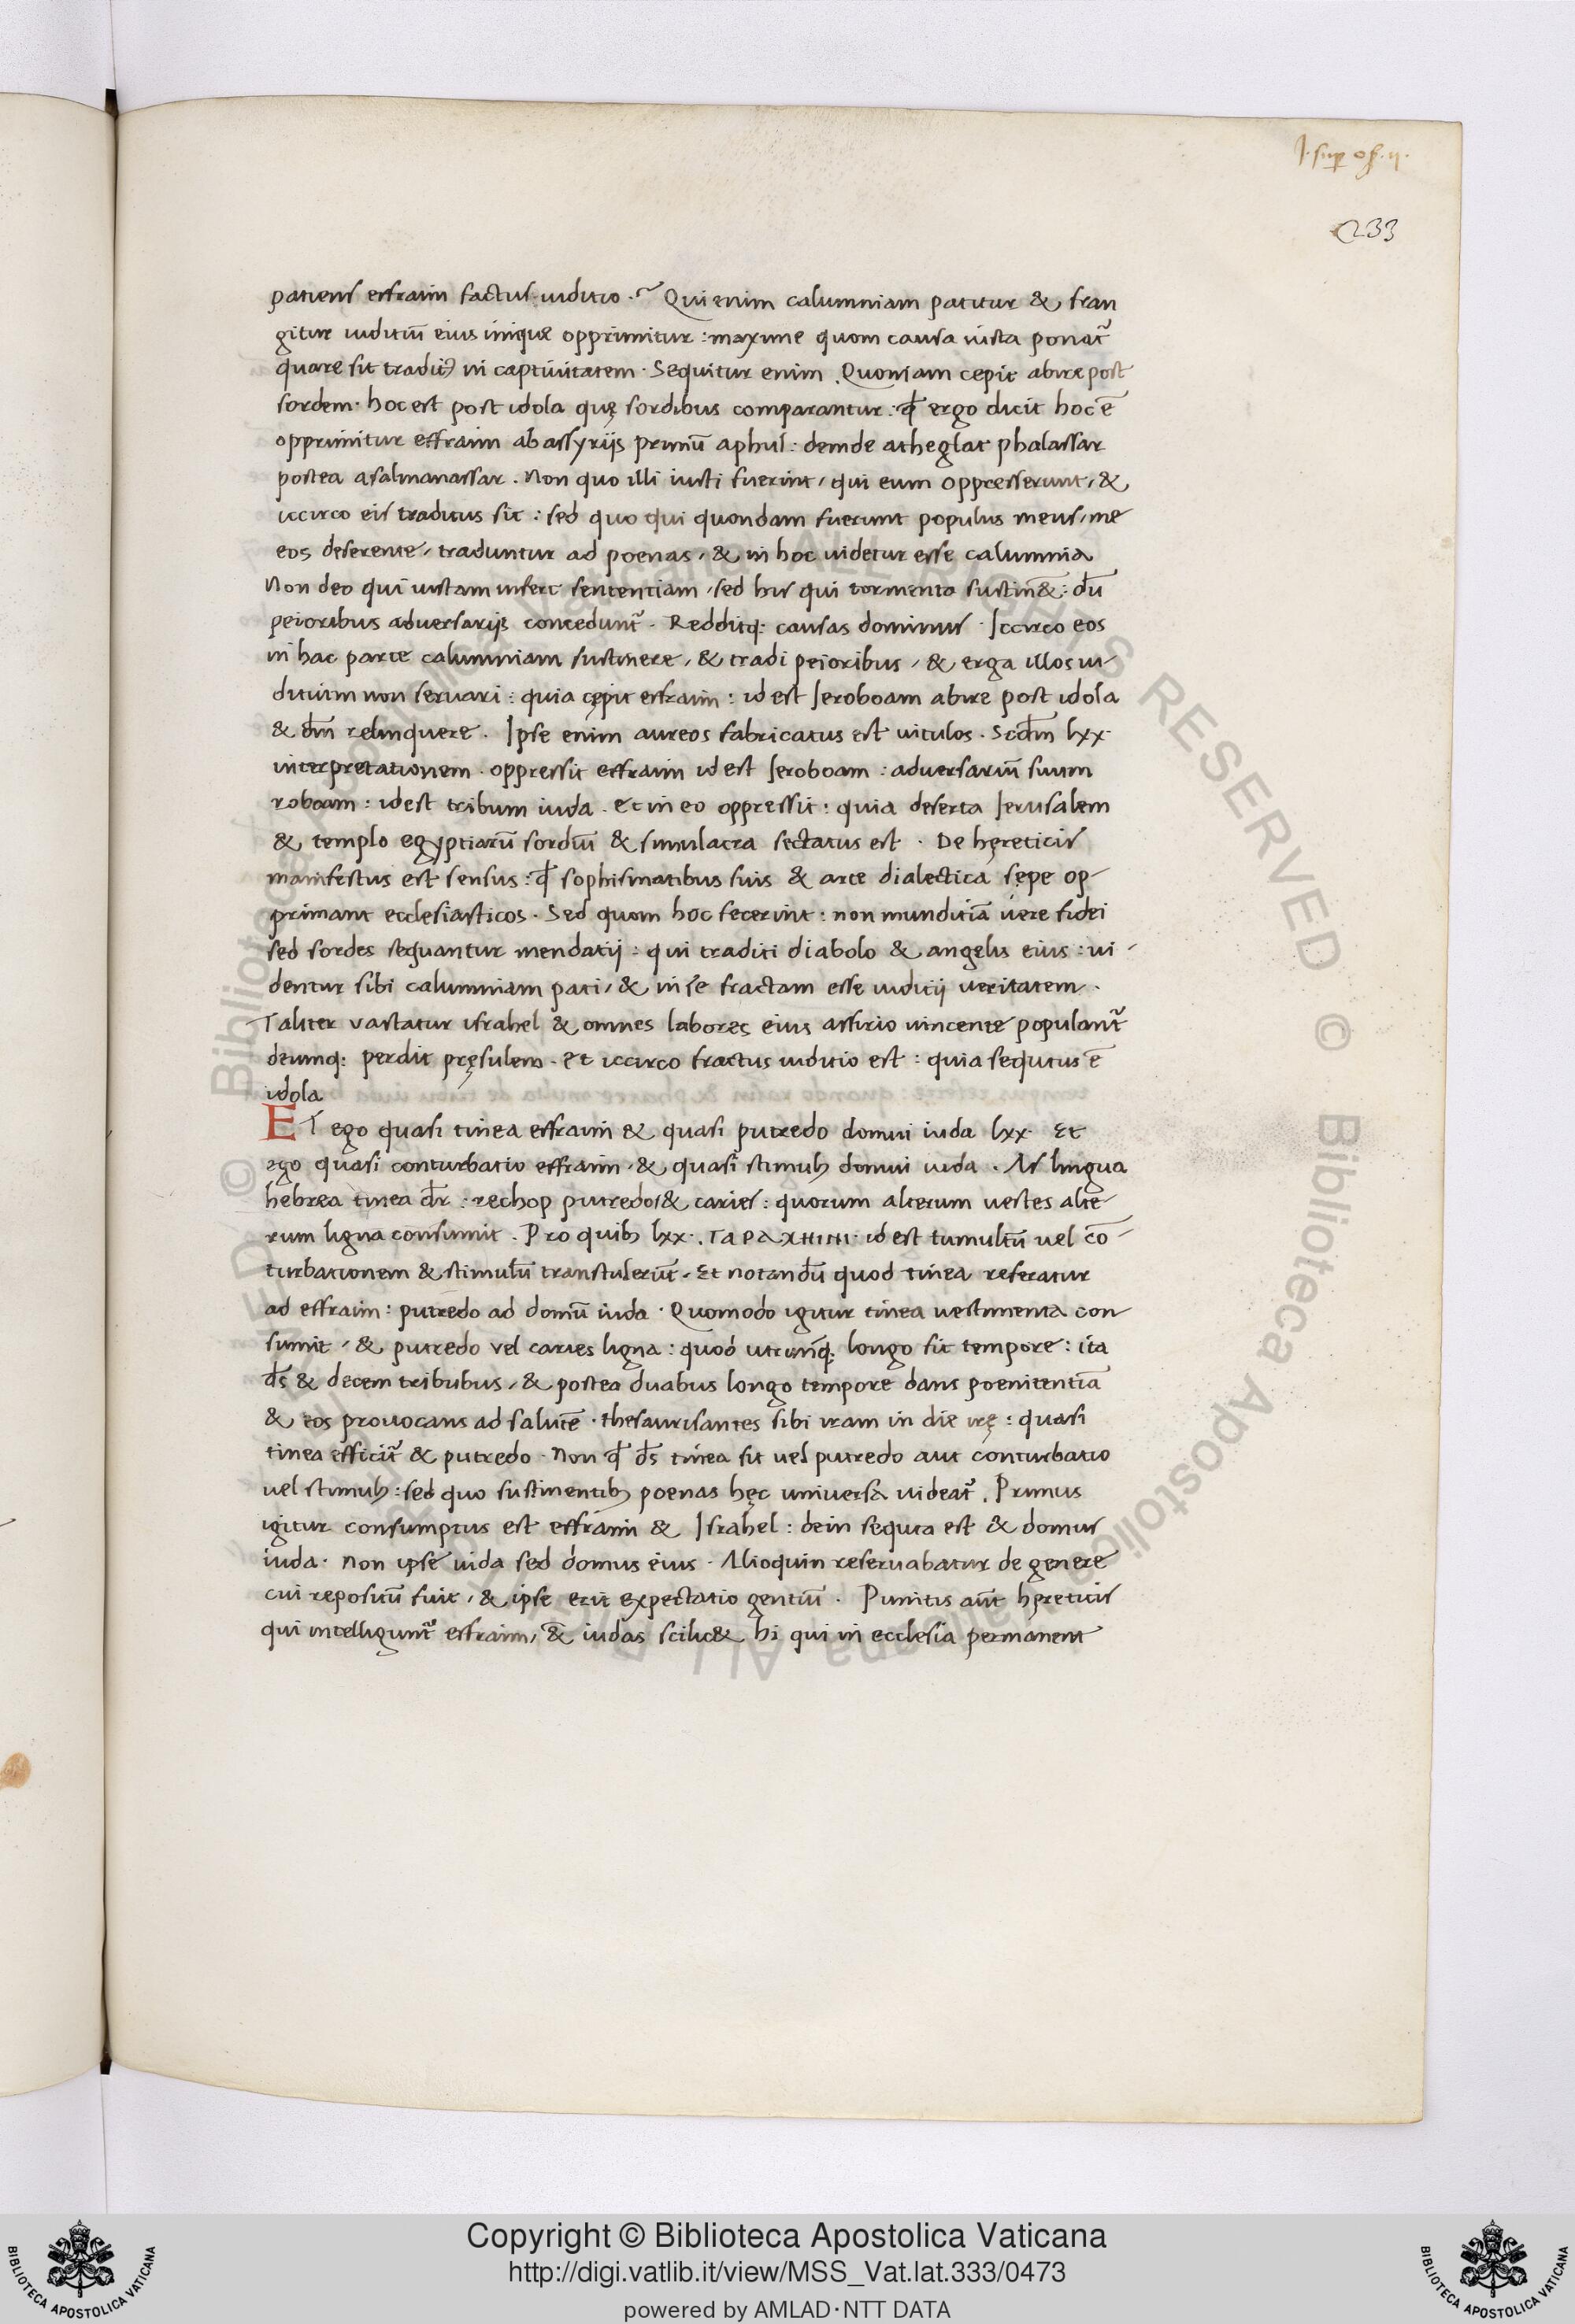 I. sup os. ii.
233
patiens effraim factus iuditio. Qui enim calumniam patitur & fran
gitur iuditiū eius inique opprimitur: maxime quom causa iusta ponat᷑
quare sit traditꝰ in captiuitatem. Sequitur enim. Quoniam cepit abire post
sordem. hoc est post idola quę sordibus comparantur: qđ ergo dicit hoc ē
opprimitur effraim ab assyrijs primū aphul: deinde atheglat phalassar
postea asalmanassar. Non quo illi iusti fuerint, qui eum oppresserunt, &
iccirco eis traditus sit: sed quo qui quondam fuerunt populus meus, me
eos deserente, traduntur ad poenas, & in hoc uidetur esse calumnia
Non deo qui iustam infert sententiam, sed his qui tormenta sustin&: dū
peioribus aduersarijs concedunt᷑. Redditq: causas dominus Iccirco eos
in hac parte calumniam sustinere, & tradi peioribus, & erga illos iu-
ditium non seruari: quia cępit effraim: id est Ieroboam abire post idola
& dm̄ relinquere. Ipse enim aureos fabricatus est uitulos. Scdm̄ lxx.
interpretationem. oppressit effraim id est Ieroboam: aduersariū suum
roboam: id est tribum iuda. et in eo oppressit: quia deserta Ierusalem
& templo egyptiarū sordiū & simulacra sectatus est. De hęreticis
manifestus est sensus: qđ sophismatibus suis & arte dialectica sępe op-
primant ecclesiasticos. Sed quom hoc fecerint: non munditiā uere fidei
sed sordes sequantur mendatij: qui traditi diabolo & angelis eius: ui-
dentur sibi calumniam pati, & in se fractam esse iuditij ueritatem.
Taliter vastatur israhel & omnes labores eius assirio uincente populant᷑
deumq: perdit pręsulem. et iccirco fractus iuditio est: quia sequtus ē
idola
ET ego quasi tinea effraim & quasi putredo domui iuda lxx. Et
ego quasi conturbatio effraim, & quasi stimulꝰ domui iuda. In lingua
hebrea tinea dr̄: rechop putredo, & caries: quorum alterum uestes alte-
rum ligna consumit. Pro quibꝫ lxx. ΤΑΡΑΧΗΙΝΙ. id est tumultū uel cō-
turbationem & stimulū transtulerūt. Et notandū quod tinea referatur
ad effraim: putredo ad domū iuda. Quomodo igitur tinea uestimenta con-
sumit, & putredo vel caries ligna: quod utrunq: longo fit tempore: ita
ds̄ & decem tribubus, & postea duabus longo tempore dans poenitentiā
& eos prouocans ad salutē. thesaurisantes sibi iram in die irę: quasi
tinea efficit᷑ & putredo. Non qđ ds̄ tinea sit uel putredo aut conturbatio
uel stimulꝰ: sed quo sustinentibꝫ poenas hęc uniuersa uideat᷑. Primus
igitur consumptus est effraim & Israhel: dein sequta est & domus
iuda. Non ipse iuda sed domus eius. Alioquin reseruabatur de genere
cui repositū fuit, & ipse erit expectatio gentiū. Punitis aūt hęreticis
qui intelligunt᷑ effraim, & iudas scilic& hi qui in ecclesia permanent
Copyright © Biblioteca Apostolica Vaticana
http://digi.vatlib.it/view/MSS_Vat.lat.333/0473
powered by AMLAD·NTT DATA